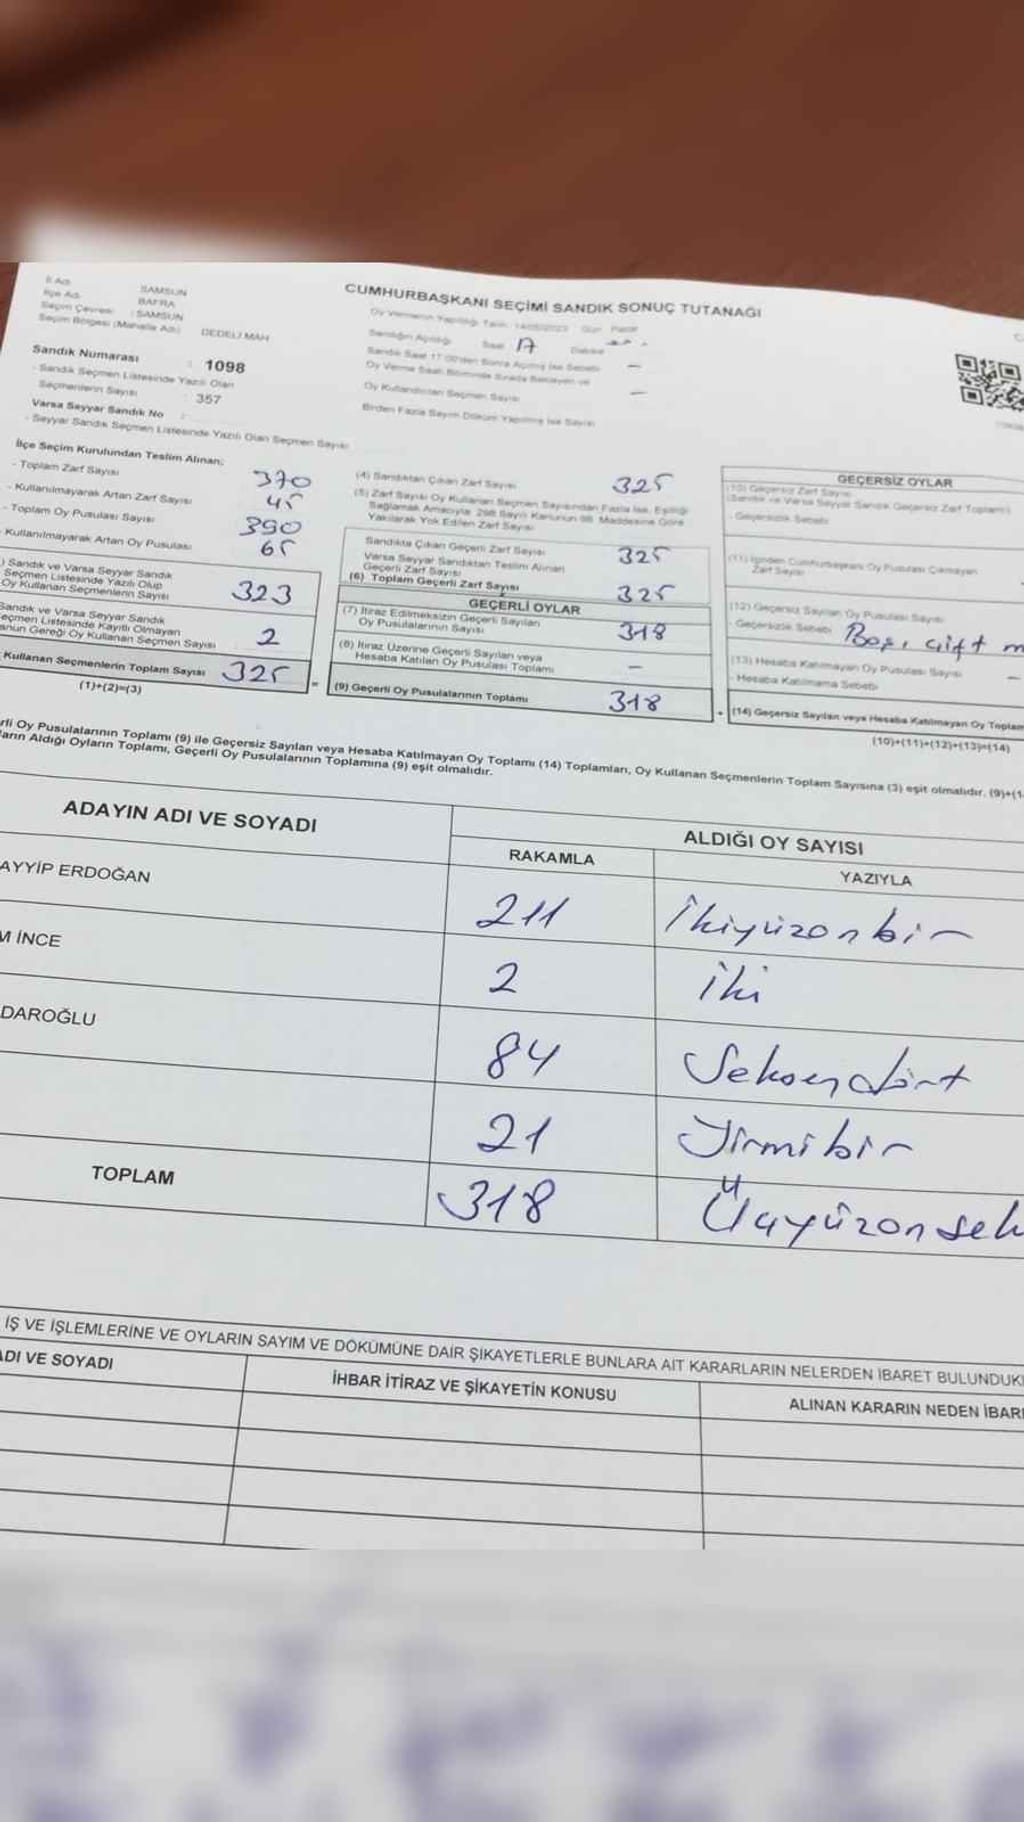 İl Adı SAMSUN
İlçe Adı BAFRA
Seçim Çevresi : SAMSUN
Seçim Bölgesi (Mahalle Adı) DEDELİ MAH
Sandık Numarası : 1098
- Sandık Seçmen Listesinde Yazılı Olan
Seçmenlerin Sayısı : 357
Varsa Seyyar Sandık No :
- Seyyar Sandık Seçmen Listesinde Yazılı Olan Seçmen Sayısı
CUMHURBAŞKANI SEÇİMİ SANDIK SONUÇ TUTANAĞI
Oy Vermenin Yapıldığı Tarih : 14/05/2023 Gün : Pazar
Sandığın Açıldığı Saat 17 Dakika
Sandık Saat 17:00'den Sonra Açılmış İse Sebebi —
Oy Verme Saati Bitiminde Sırada Bekleyen ve
Oy Kullandırılan Seçmen Sayısı —
Birden Fazla Sayım Döküm Yapılmış İse Sayısı
İlçe Seçim Kurulundan Teslim Alınan;
- Toplam Zarf Sayısı 370
- Kullanılmayarak Artan Zarf Sayısı 45
- Toplam Oy Pusulası Sayısı 390
- Kullanılmayarak Artan Oy Pusulası 65
) Sandık ve Varsa Seyyar Sandık
Seçmen Listesinde Yazılı Olup
Oy Kullanan Seçmenlerin Sayısı 323
Sandık ve Varsa Seyyar Sandık
eçmen Listesinde Kayıtlı Olmayan
anun Gereği Oy Kullanan Seçmen Sayısı 2
Kullanan Seçmenlerin Toplam Sayısı 325
(1)+(2)=(3)
(4) Sandıktan Çıkan Zarf Sayısı 325
(5) Zarf Sayısı Oy Kullanan Seçmen Sayısından Fazla İse, Eşitliği
Sağlamak Amacıyla 298 Sayılı Kanunun 98. Maddesine Göre
Yakılarak Yok Edilen Zarf Sayısı
Sandıkta Çıkan Geçerli Zarf Sayısı 325
Varsa Seyyar Sandıktan Teslim Alınan
Geçerli Zarf Sayısı
(6) Toplam Geçerli Zarf Sayısı 325
GEÇERLİ OYLAR
(7) İtiraz Edilmeksizin Geçerli Sayılan
Oy Pusulalarının Sayısı 318
(8) İtiraz Üzerine Geçerli Sayılan veya
Hesaba Katılan Oy Pusulası Toplamı —
(9) Geçerli Oy Pusulalarının Toplamı 318
GEÇERSİZ OYLAR
(10) Geçersiz Zarf Sayısı
(Sandık ve Varsa Seyyar Sandık Geçersiz Zarf Toplamı)
- Geçersizlik Sebebi
(11) İçinden Cumhurbaşkanı Oy Pusulası Çıkmayan
Zarf Sayısı
(12) Geçersiz Sayılan Oy Pusulası Sayısı
- Geçersizlik Sebebi Boş, çift m
(13) Hesaba Katılmayan Oy Pusulası Sayısı —
- Hesaba Katılmama Sebebi
(14) Geçersiz Sayılan veya Hesaba Katılmayan Oy Toplam
(10)+(11)+(12)+(13)=(14)
rli Oy Pusulalarının Toplamı (9) ile Geçersiz Sayılan veya Hesaba Katılmayan Oy Toplamı (14) Toplamları, Oy Kullanan Seçmenlerin Toplam Sayısına (3) eşit olmalıdır. (9)+(1
ların Aldığı Oyların Toplamı, Geçerli Oy Pusulalarının Toplamına (9) eşit olmalıdır.
ADAYIN ADI VE SOYADI
ALDIĞI OY SAYISI
RAKAMLA YAZIYLA
AYYİP ERDOĞAN 211 İkiyüzonbir
M İNCE 2 iki
DAROĞLU 84 Seksendört
21 Yirmibir
TOPLAM 318 Üçyüzonsek
İŞ VE İŞLEMLERİNE VE OYLARIN SAYIM VE DÖKÜMÜNE DAİR ŞİKAYETLERLE BUNLARA AİT KARARLARIN NELERDEN İBARET BULUNDUK
ADI VE SOYADI İHBAR İTİRAZ VE ŞİKAYETİN KONUSU ALINAN KARARIN NEDEN İBAR